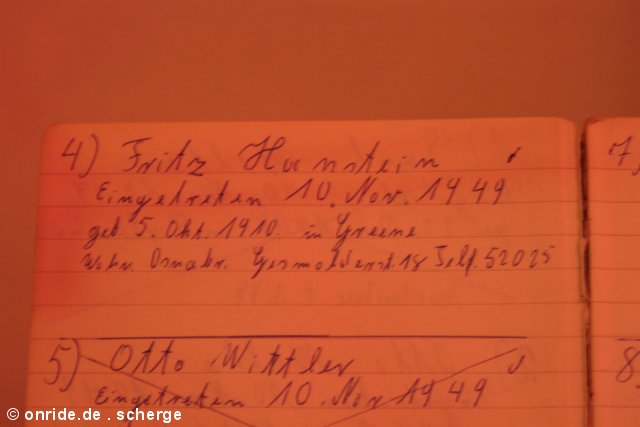 4) Fritz Hornstein
Eingetreten 10. Nov. 1949
geb. 5. Okt. 1910. in Greene
Wohn. Osnabr. Gesmolderst. 18 Telf. 52025
5) Otto Wittler
Eingetreten 10. Nov 1949
7,
8
© onride.de . scherge